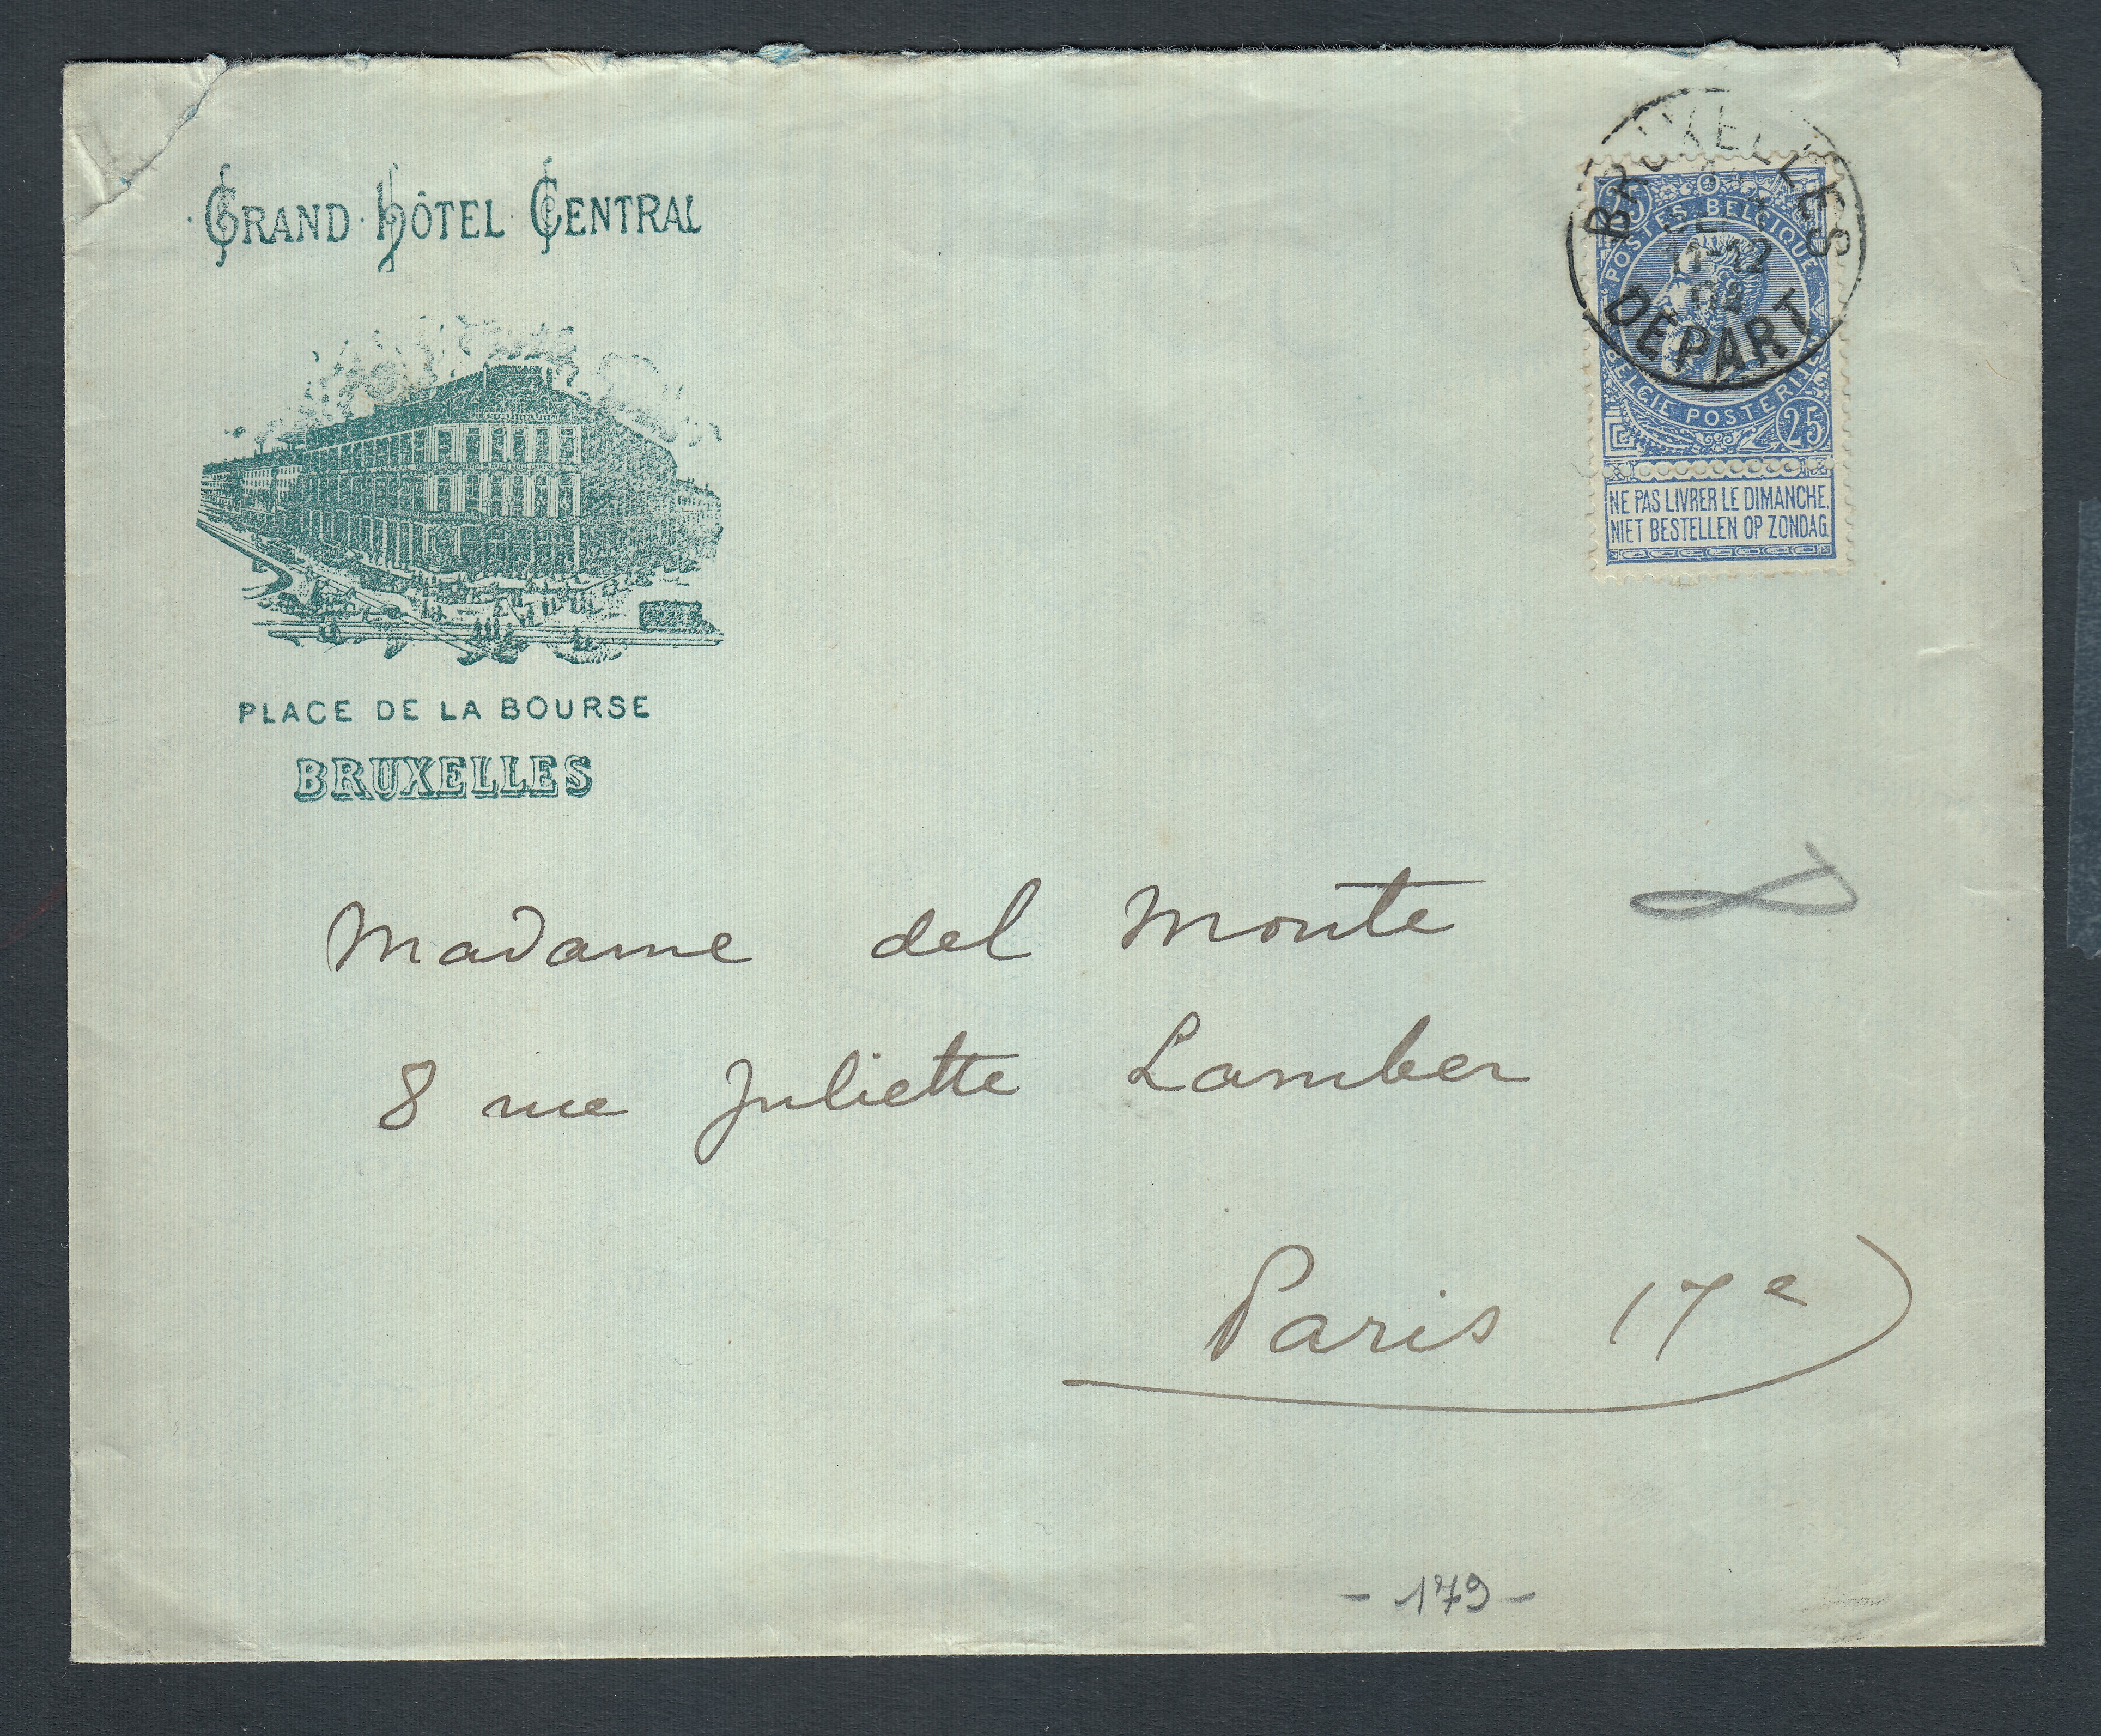 GRAND HÔTEL CENTRAL
PLACE DE LA BOURSE
BRUXELLES
BRUXELLES
DEPART
25
POSTES BELGIQUE
BELGIE POSTERIJEN
25
NE PAS LIVRER LE DIMANCHE.
NIET BESTELLEN OP ZONDAG
Madame del Monte
8 rue Juliette Lamber
Paris 17e
- 179 -